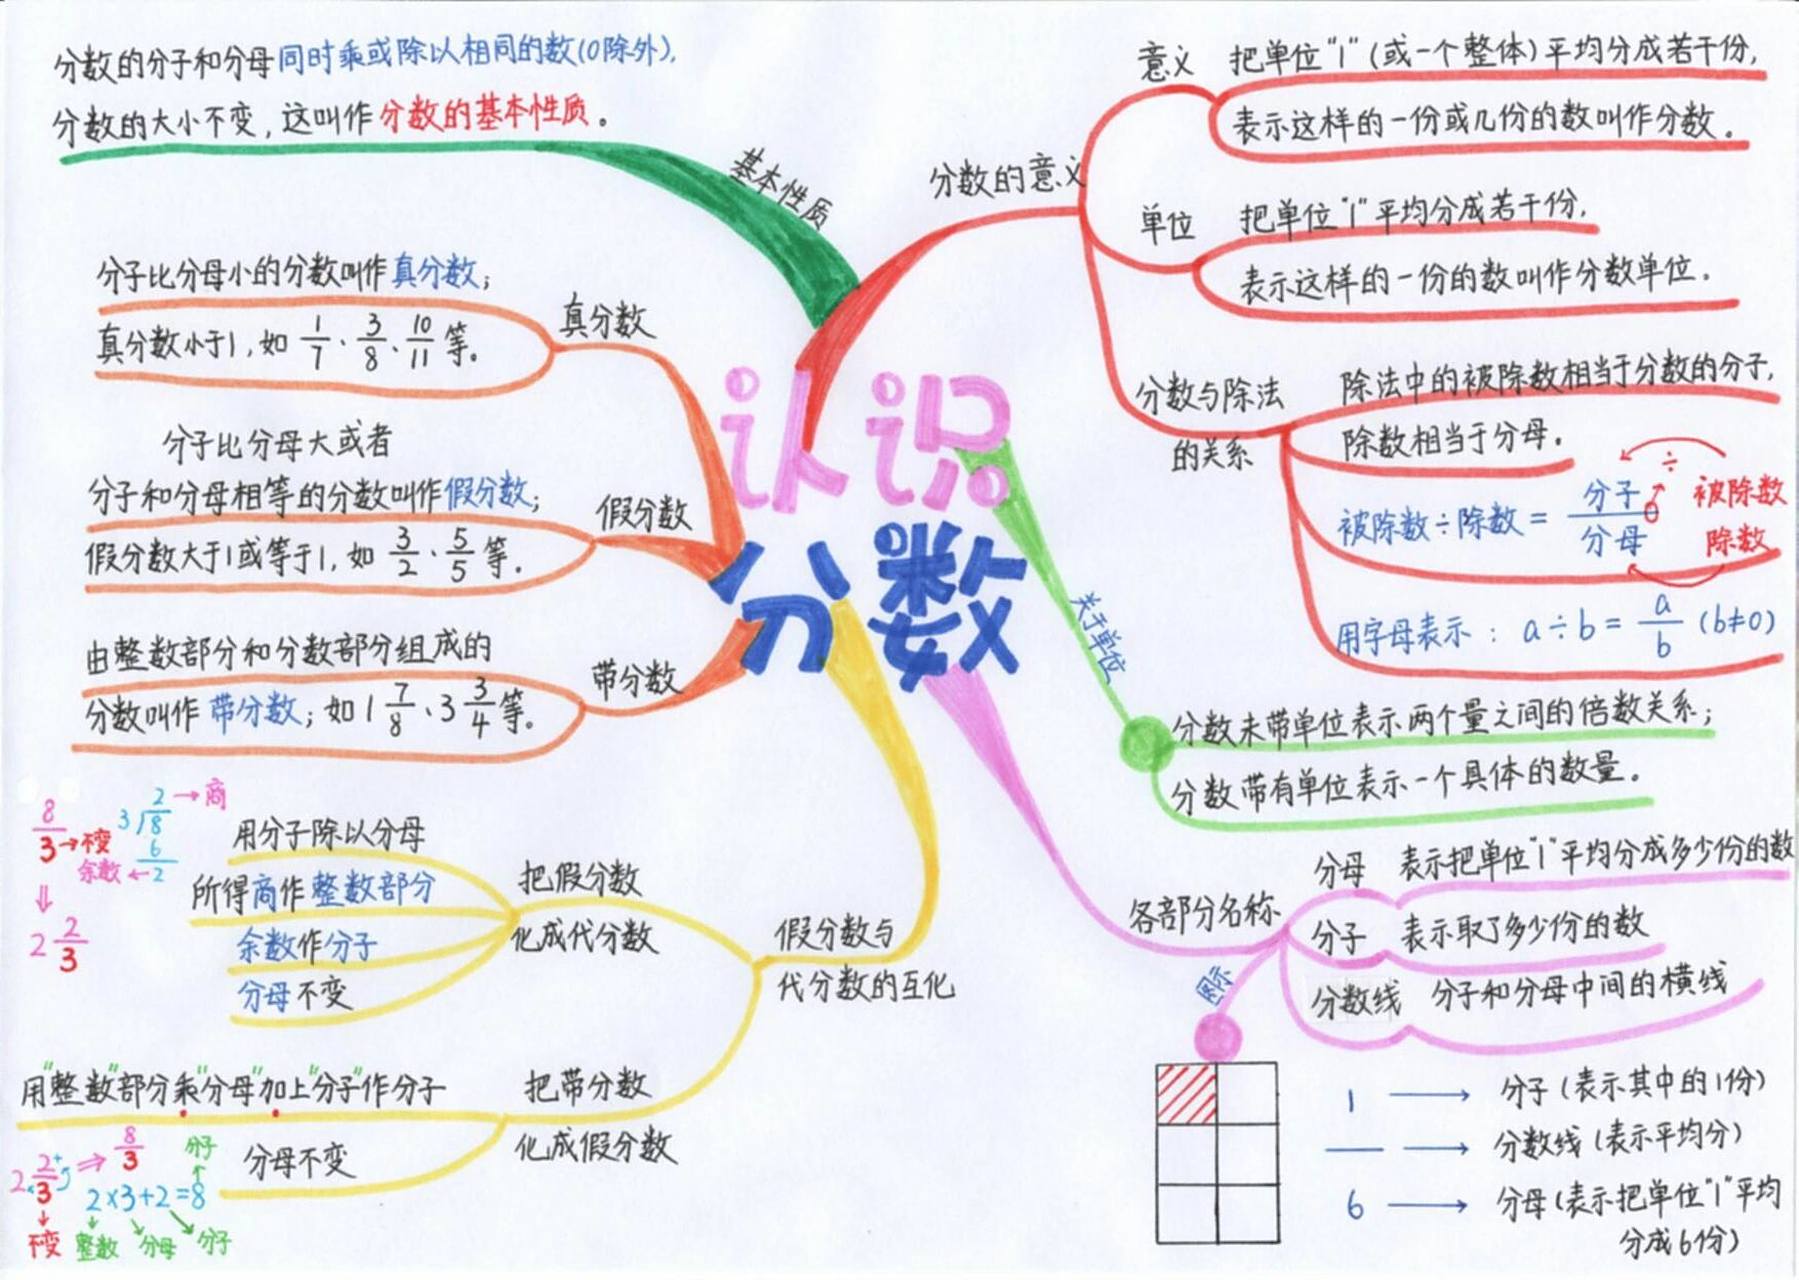 分数的分子和分母同时乘或除以相同的数(0除外),
分数的大小不变,这叫作分数的基本性质。
基本性质
分子比分母小的分数叫作真分数;
真分数小于1,如 1/7、3/8、10/11 等。
真分数
分子比分母大或者
分子和分母相等的分数叫作假分数;
假分数大于1或等于1,如 3/2、5/5 等.
假分数
由整数部分和分数部分组成的
分数叫作带分数;如 1 7/8、3 3/4 等.
带分数
认识
分数
分数的意义
意义 把单位"1"(或一个整体)平均分成若干份,
表示这样的一份或几份的数叫作分数。
单位 把单位"1"平均分成若干份,
表示这样的一份的数叫作分数单位.
分数与除法
的关系
除法中的被除数相当于分数的分子,
除数相当于分母.
被除数÷除数= 分子/分母
÷
被除数
除数
用字母表示: a÷b= a/b (b≠0)
关于单位
分数未带单位表示两个量之间的倍数关系;
分数带有单位表示一个具体的数量.
各部分名称
分母 表示把单位"1"平均分成多少份的数
分子 表示取了多少份的数
分数线 分子和分母中间的横线
图示
1 → 分子(表示其中的1份)
— → 分数线(表示平均分)
6 → 分母(表示把单位"1"平均
分成6份)
假分数与
代分数的互化
把假分数
化成代分数
用分子除以分母
所得商作整数部分
余数作分子
分母不变
8/3 → 不变
2 → 商
3 8
6
余数 ← 2
⇓
2 2/3
把带分数
化成假分数
用"整数"部分乘"分母"加上"分子"作分子
分母不变
2 2/3 ⇒ 8/3
+
×
分子
↑
2×3+2=8
不变 整数 分母 分子